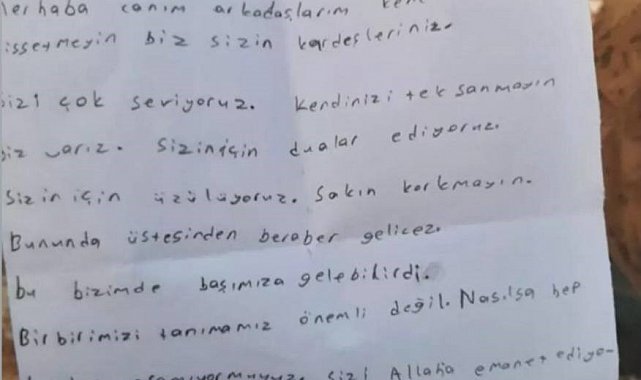 erhaba canım arkadaşlarım
issetmeyin biz sizin kardeşleriniz.
izi çok seviyoruz. Kendinizi tek sanmayın
iz varız. Siziniçin dualar ediyoruz.
Sizin için üzülüyoruz. Sakın korkmayın.
Bununda üstesinden beraber gelicez.
bu bizimde başımıza gelebilirdi.
Birbirimizi tanımamız önemli değil. Nasılsa hep
sizi Allaha emanet ediyo-